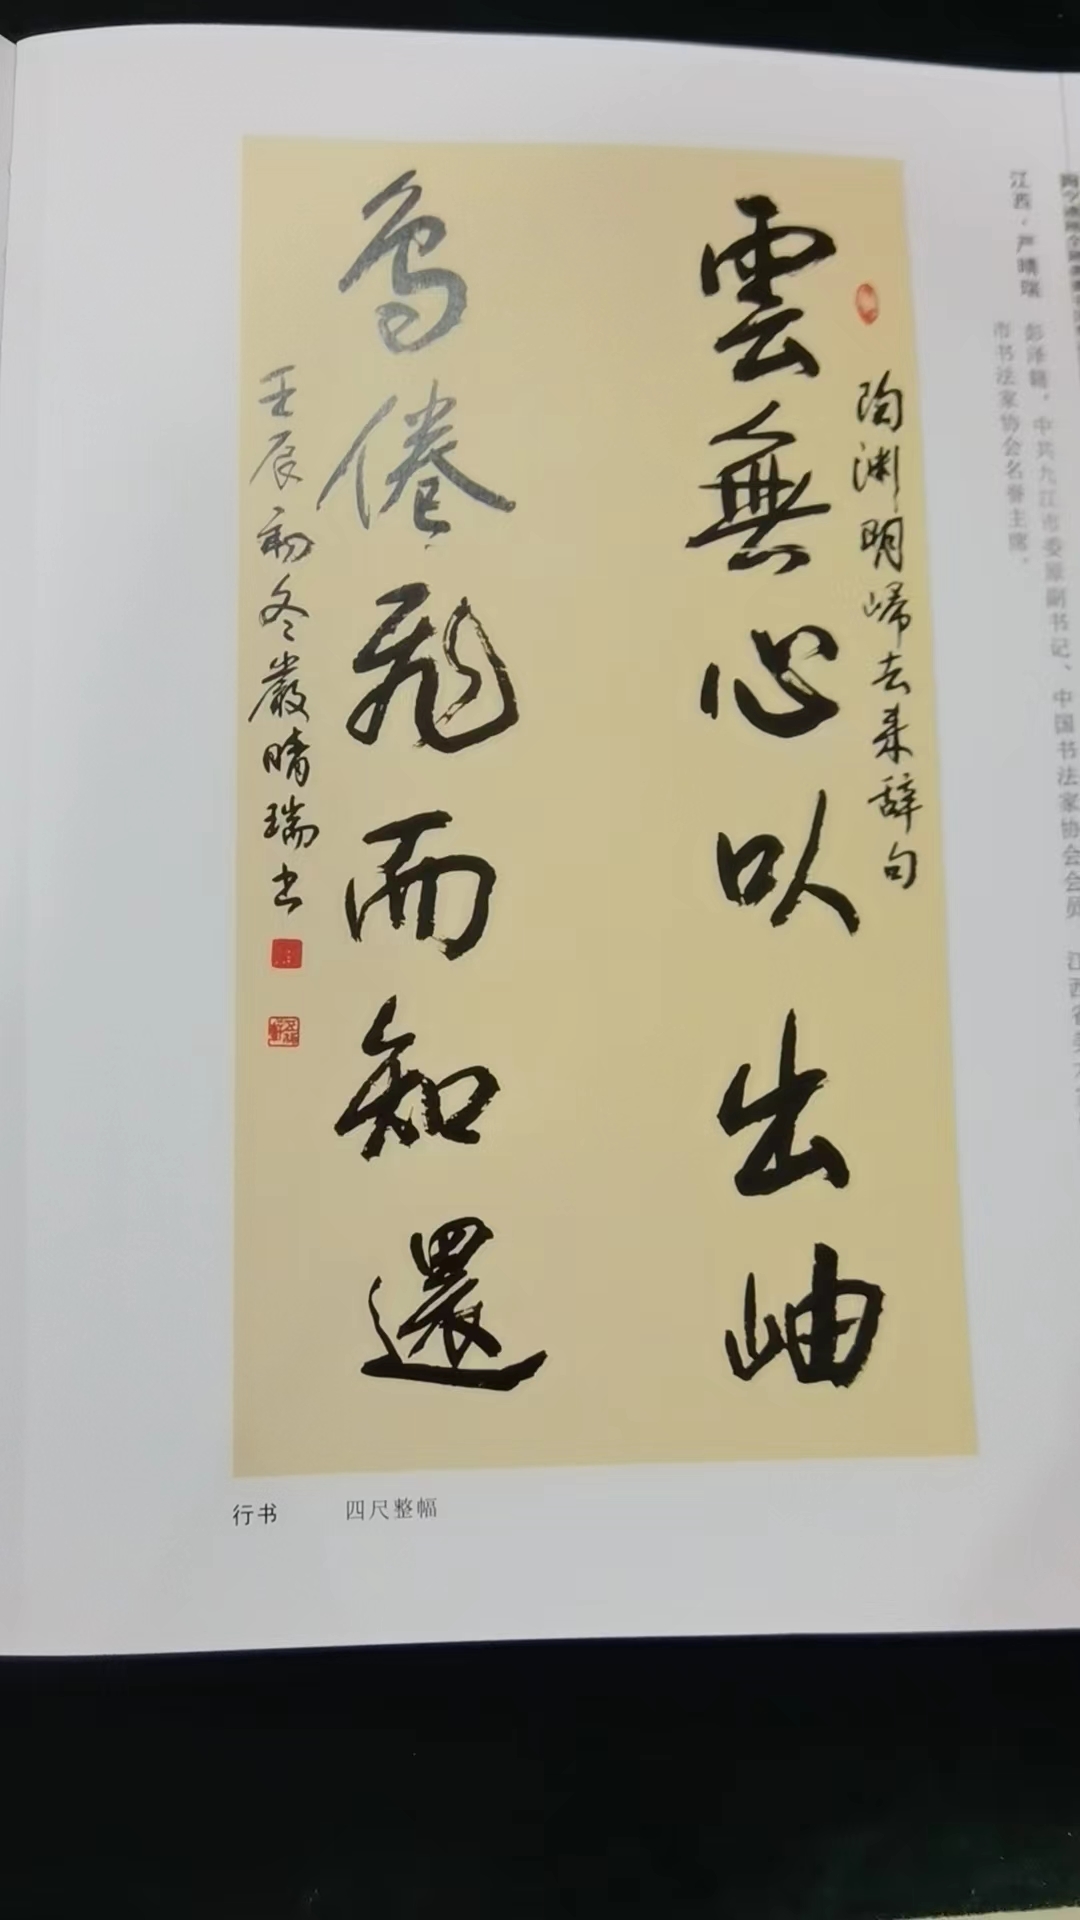 陶渊明歸去来辞句
雲無心以出岫
鳥倦飛而知還
壬辰初冬嚴晴瑞书
江西·严晴瑞
彭泽籍，中共九江市委原副书记、中国书法家协会会员
市书法家协会名誉主席。
行书 四尺整幅